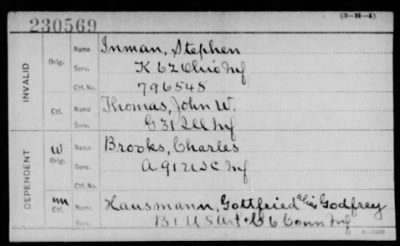 230569
(3-H-4)
INVALID
Orig.
Name
Inman, Stephen
Serv.
K 62 Ohio Inf
Ctf. No.
796548
Ctf.
Name
Thomas, John W.
Serv.
G 31 Ill Inf
DEPENDENT
W
Orig.
Name
Brooks, Charles
Serv.
A 91 U.S.C Inf
Ctf. No.
Ctf.
Name
Hausmann, Gottfried alias Godfrey
B 1 U S Art & G 6 Conn Inf